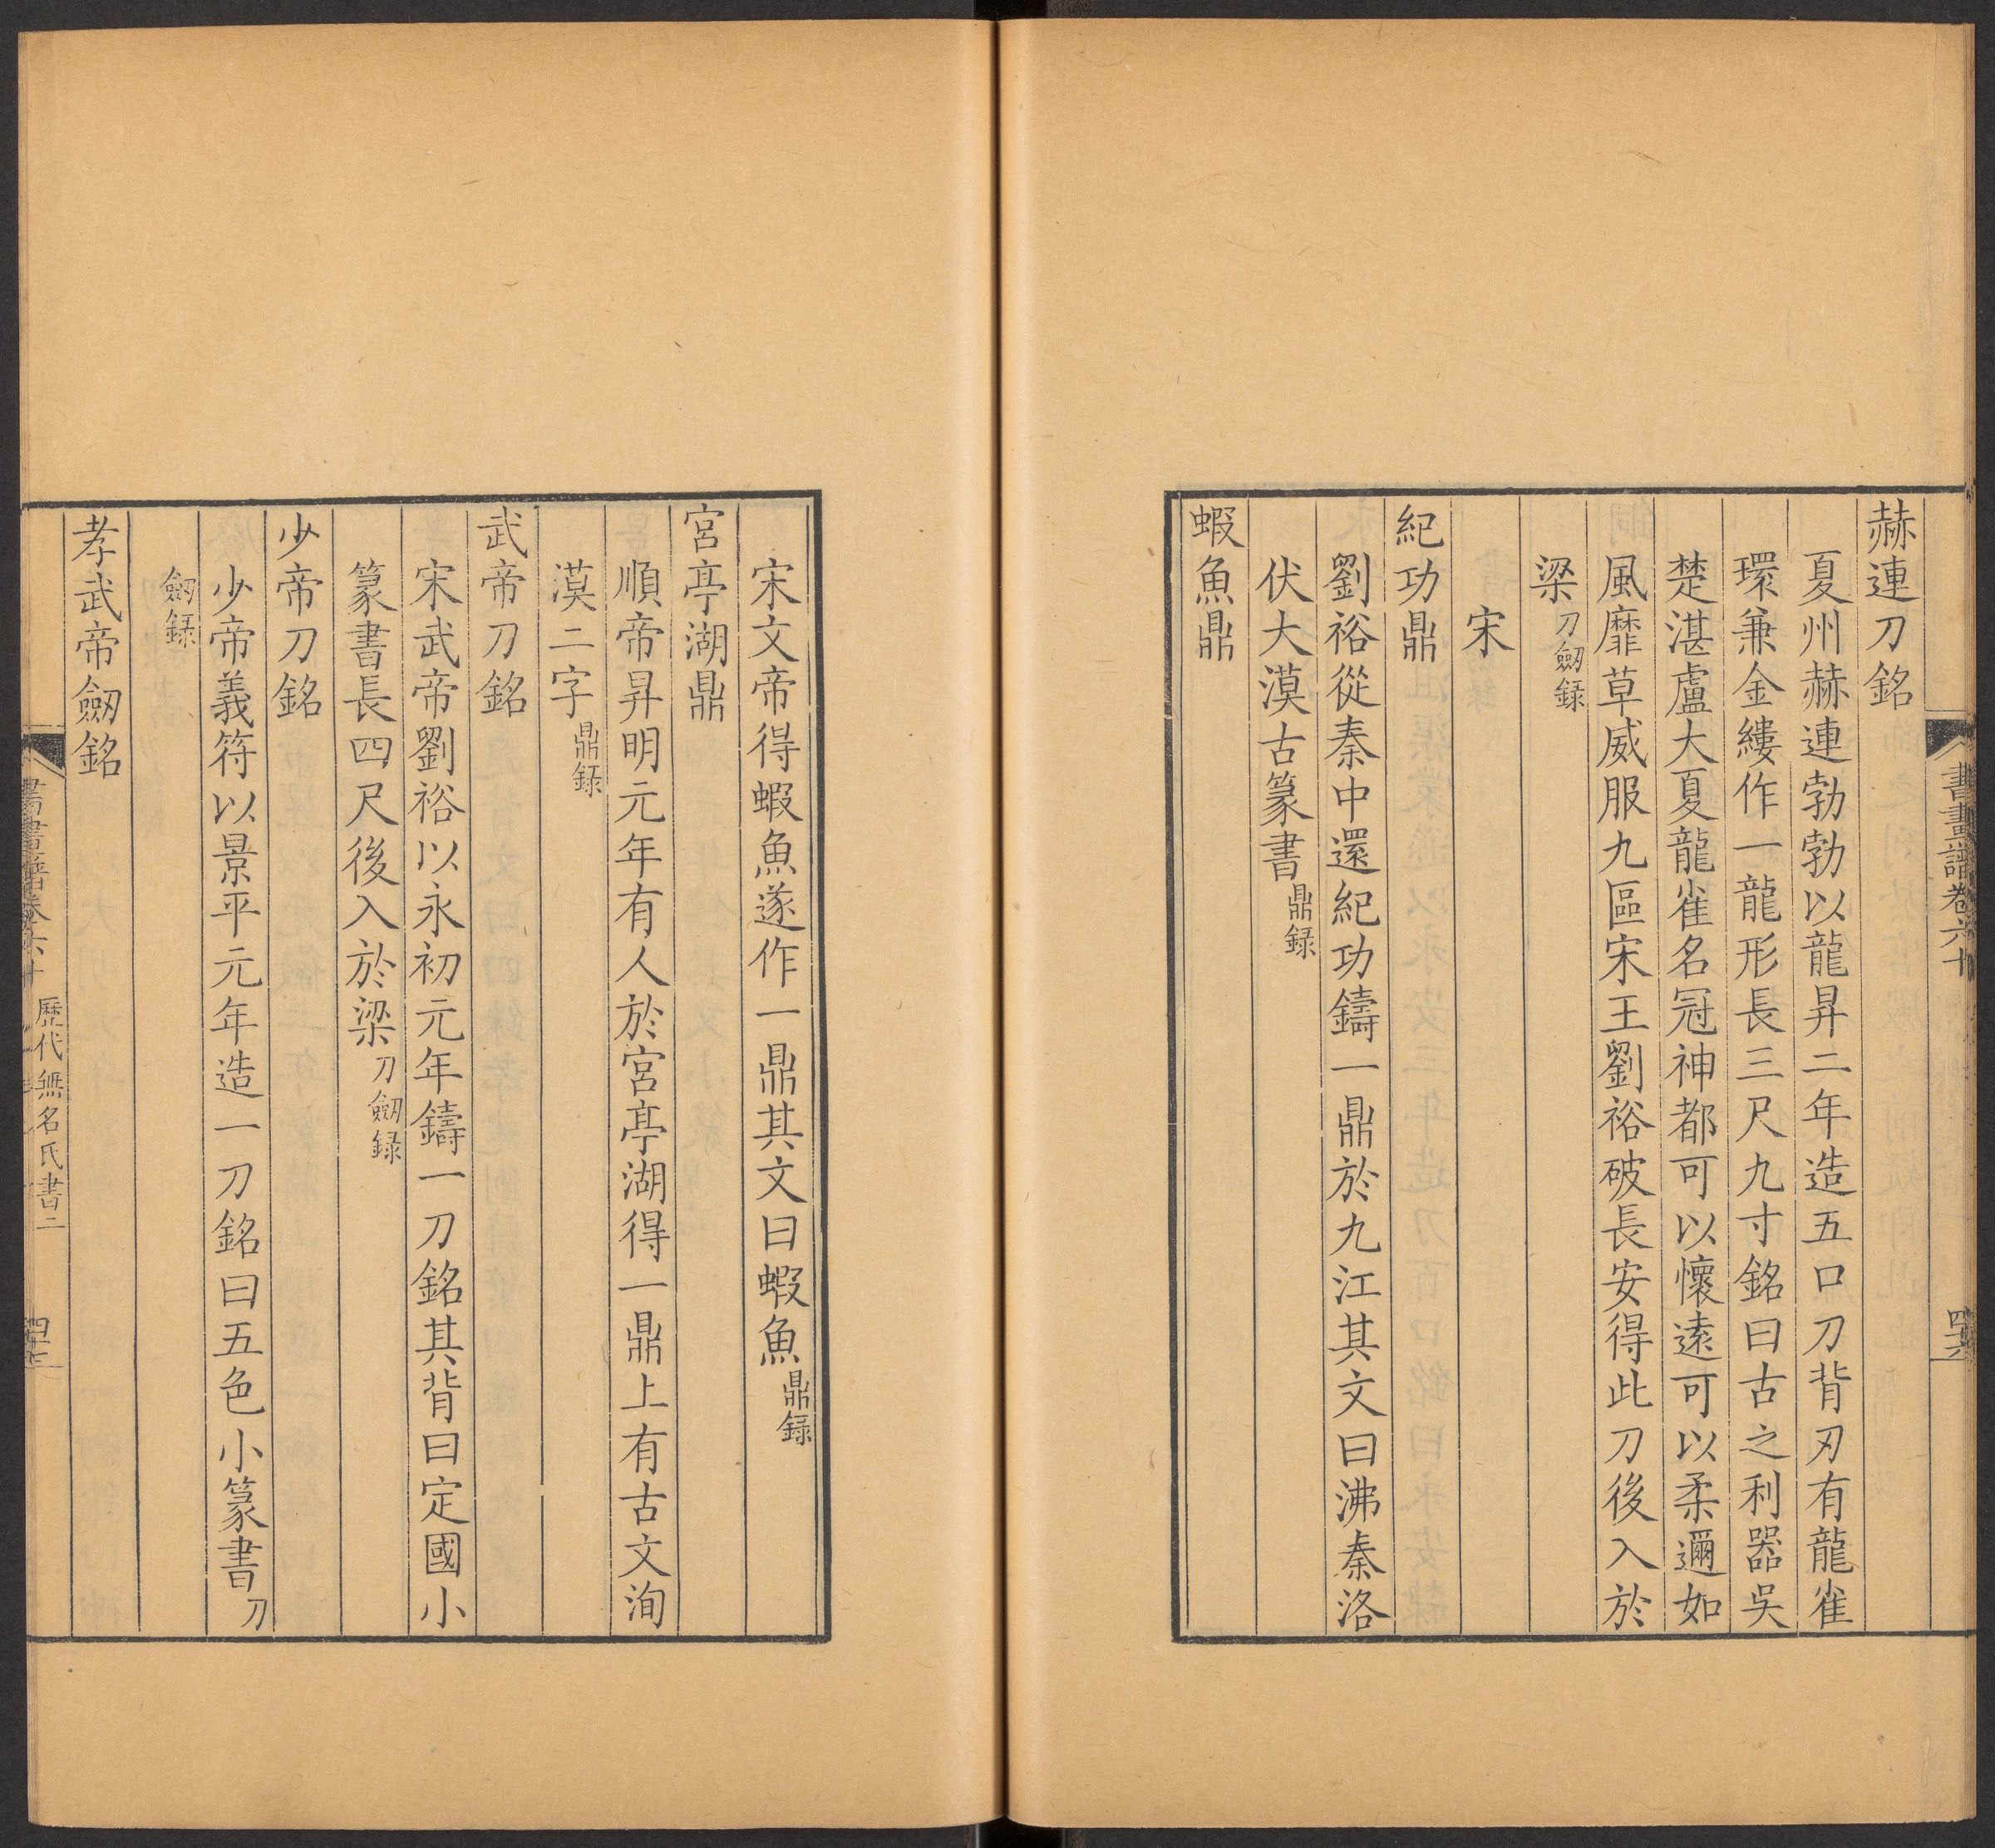 書畫譜卷六十
四十六
赫連刀銘
夏州赫連勃勃以龍昇二年造五口刀背刃有龍雀
環兼金縷作一龍形長三尺九寸銘曰古之利器吳
楚湛盧大夏龍雀名冠神都可以懷遠可以柔邇如
風靡草威服九區宋王劉裕破長安得此刀後入於
梁刀劒録
宋
紀功鼎
劉裕從秦中還紀功鑄一鼎於九江其文曰沸秦洛
伏大漠古篆書鼎録
蝦魚鼎
宋文帝得蝦魚遂作一鼎其文曰蝦魚鼎録
宮亭湖鼎
順帝昇明元年有人於宮亭湖得一鼎上有古文洵
漠二字鼎録
武帝刀銘
宋武帝劉裕以永初元年鑄一刀銘其背曰定國小
篆書長四尺後入於梁刀劒録
少帝刀銘
少帝義符以景平元年造一刀銘曰五色小篆書刀
劒録
孝武帝劒銘
書畫譜卷六十 歷代無名氏書二